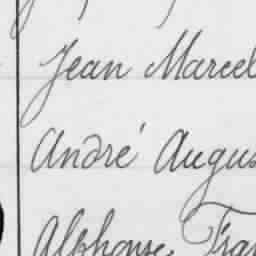 Jean Marcel
André Augus
Alphonse Fran